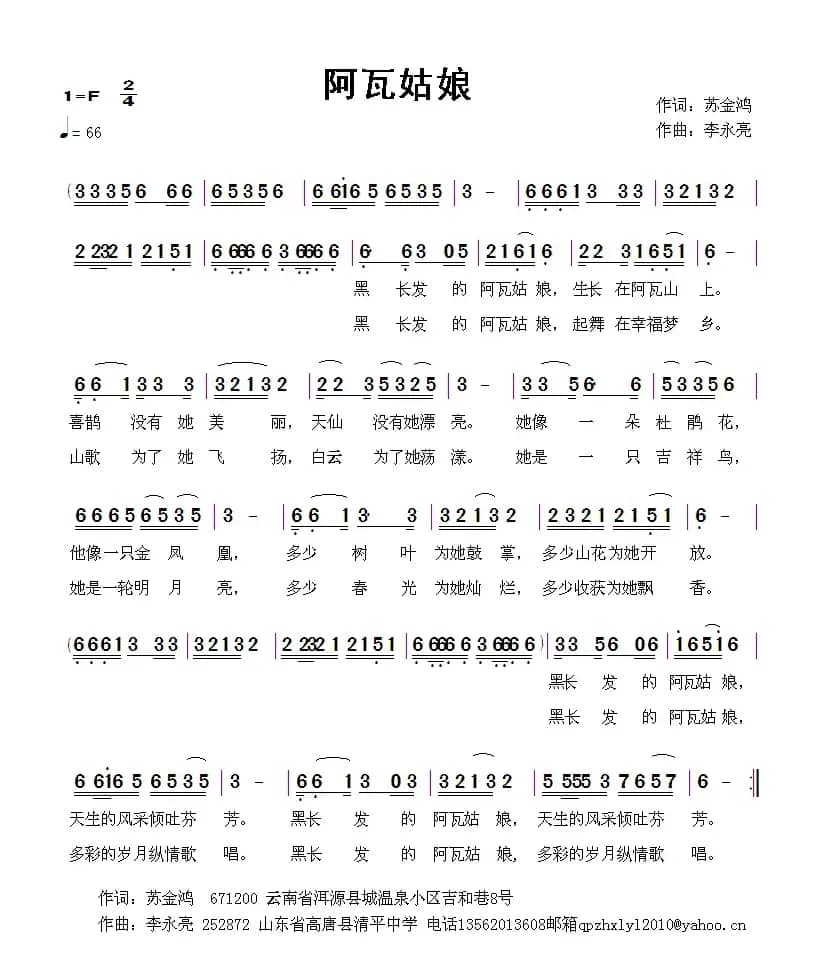 阿瓦姑娘
1=F 2/4
作词：苏金鸿
♩= 66
作曲：李永亮
(33356 66 | 65356 | 66i65 6535 | 3 - | 66613 33 | 32132 |
22321 2151 | 6 666 6 3 666 6 | 6· 63 05 | 21616 | 22 31651 | 6 - |
黑 长发 的 阿瓦姑 娘，生长 在阿瓦山 上。
黑 长发 的 阿瓦姑 娘，起舞 在幸福梦 乡。
66 133 3 | 32132 | 22 35325 | 3 - | 33 56· 6 | 53356 |
喜鹊 没有 她 美 丽，天仙 没有她漂 亮。 她像 一 朵 杜 鹃 花，
山歌 为了 她 飞 扬，白云 为了她荡 漾。 她是 一 只 吉 祥 鸟，
66656535 | 3 - | 66 13· 3 | 32132 | 2321 2151 | 6 - |
他像一只金 凤 凰， 多少 树 叶 为她鼓 掌，多少山花为她开 放。
她是一轮明 月 亮， 多少 春 光 为她灿 烂，多少收获为她飘 香。
(66613 33 | 32132 | 22321 2151 | 6 666 6 3 666 6) | 33 56 06 | i65i6 |
黑长 发 的 阿瓦姑 娘，
黑长 发 的 阿瓦姑 娘，
6 6i6 5 6535 | 3 - | 66 13 03 | 32132 | 5 555 3 7657 | 6 - :‖
天生的风采倾吐芬 芳。 黑长 发 的 阿瓦姑 娘，天生的风采倾吐芬 芳。
多彩的岁月纵情歌 唱。 黑长 发 的 阿瓦姑 娘，多彩的岁月纵情歌 唱。
作词：苏金鸿 671200 云南省洱源县城温泉小区吉和巷8号
作曲：李永亮 252872 山东省高唐县清平中学 电话13562013608邮箱qpzhxlyl2010@yahoo.cn